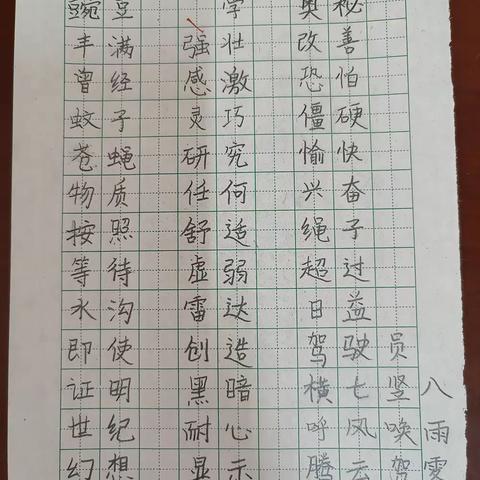 豌豆 学 奥秘
丰满 强壮 改善
曾经 感激 恐怕
蚊子 灵巧 僵硬
苍蝇 研究 愉快
物质 任何 兴奋
按照 舒适 绳子
等待 虚弱 超过
水沟 雷达 日益
即使 创造 驾驶员
证明 黑暗 横七竖八
世纪 耐心 呼风唤雨
幻想 显示 腾云驾雾